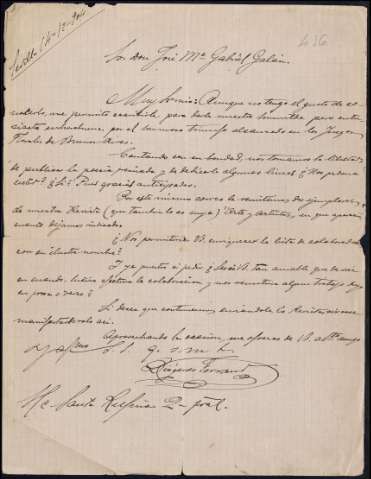 Sevilla
416
Sr. Don José Mª Gabriel Galán.
Muy Sr. mío: Aunque no tengo el gusto de co-
nocerlo, me permito escribirle, para darle nuestra humilde pero entu-
siasta enhorabuena por el hermoso triunfo alcanzado en los Juegos
Florales de Buenos Aires.
Contando con su bondad, nos tomamos la libertad
de publicar la poesía premiada y de dedicarle algunas líneas ¿Nos perdona
usted? ¿Sí? Pues gracias anticipadas.
Por este mismo correo le remitimos dos ejemplares
de nuestra Revista (que también lo es suya) Arte y Artistas, en que apare-
ce cuanto dejamos indicado.
¿Nos permitiría V. enriquecer la lista de colaboradores
con su ilustre nombre?
Y ya puestos a pedir ¿Será V. tan amable que de vez
en cuando, hiciera efectiva la colaboración, y nos remitiera algún trabajo suyo
en prosa o verso?
Si desea que continuemos enviándole la Revista sírvase
manifestárnoslo así.
Aprovechando la ocasión, me ofrezco de V. afmo. amigo
y s. s. q. s. m. b.
Ferrand
S/c Santa Rufina 2 - pral.